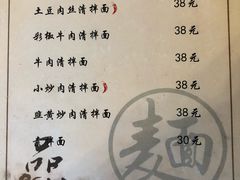 土豆肉丝清拌面 38元
彩椒牛肉清拌面 38元
牛肉清拌面 38元
小炒肉清拌面 38元
韭黄炒肉清拌面 38元
面 30元
品
麺